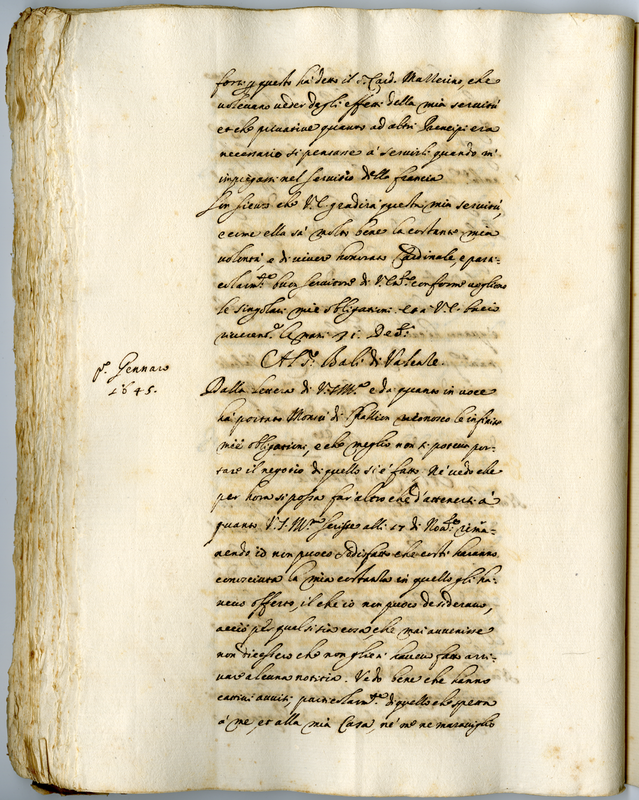 forz. p questo hà detto il S. Card. Mazzerino, che
volevano veder degli effetti della mia servitù
et che privative quanto ad altri Prencipi era
necessario si pensasse à servirli quando m'
impiegassi nel servitio della francia
Son sicuro che V.E. gradirà questa mia servitù,
e come ella sà molto bene la costante mia
volontà e di vivere honorato Cardinale, e par-
ticolarm.te buon servitore di V. conforme vogliono
le singolari mie obligationi. Et à V.E. bacio
riverent.e le mani. 31. Xbre.
Al S. Balì di Valenze.
p.o Gennaro
1645.
Dalla lettera di V.S.Ill.ma e da quanto in voce
hà portato Monsù di riconosco le infinite
mie obligationi, e che meglio non si poteva por-
tare il negotio di quello si è fatto. Ne vedo che
per hora si possa far altro che d'attenersi à
quanto V.S.Ill.ma scrisse alli 17 di Nov.bre rima-
nendo io non puoco sodisfatto che costì havranno
conosciuta la mia costanza in quello gli ha-
vevo offerto, il che io non puoco desideravo,
acciò per qualsisia cosa che mai avvenisse
non dicessero che non glien'havevo fatto arri-
vare alcuna notitia. Vedo bene che hanno
cattivi avvisi, particolarm.te di quello che spetta
à me, et alla mia Casa, nè me ne maraviglio